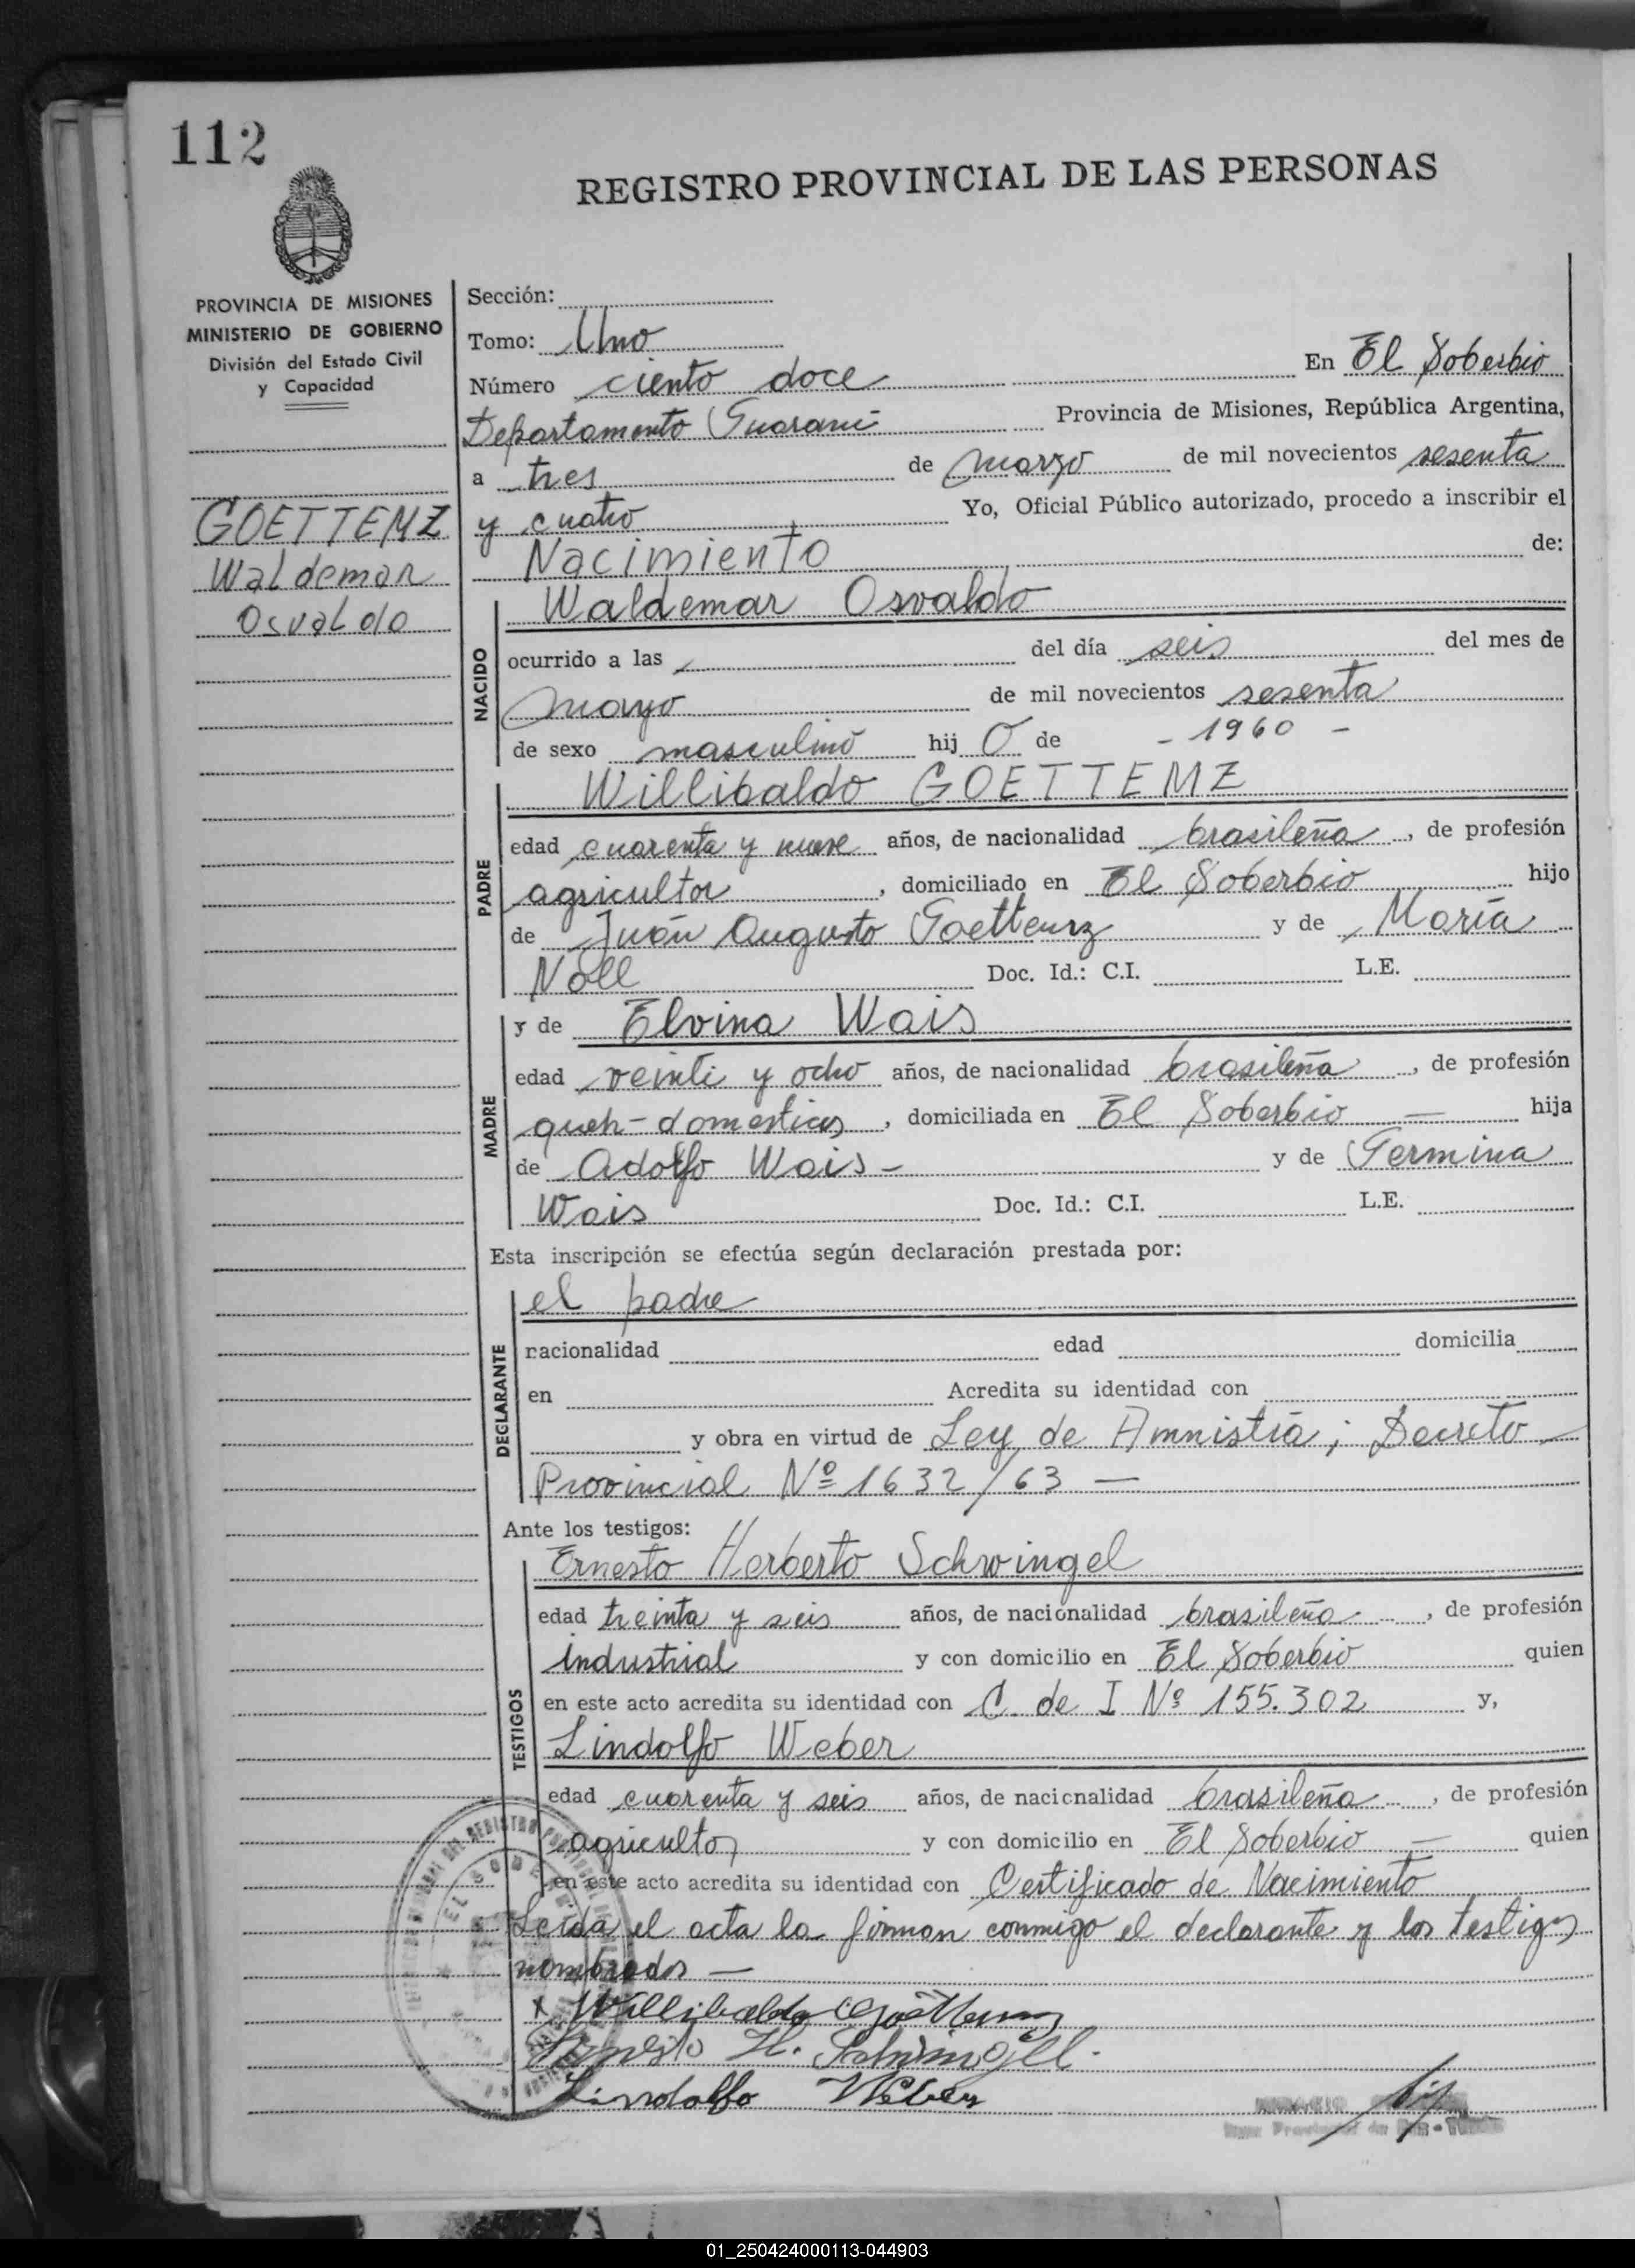 112
REGISTRO PROVINCIAL DE LAS PERSONAS
PROVINCIA DE MISIONES
MINISTERIO DE GOBIERNO
División del Estado Civil
y Capacidad
GOETTEMZ
Waldemar
Osvaldo
Sección:
Tomo: Uno
Número ciento doce En El Soberbio
Departamento Guaraní Provincia de Misiones, República Argentina,
a tres de marzo de mil novecientos sesenta
y cuatro Yo, Oficial Público autorizado, procedo a inscribir el
Nacimiento de:
NACIDO
Waldemar Osvaldo
ocurrido a las del día seis del mes de
mayo de mil novecientos sesenta
de sexo masculino hij o de - 1960 -
PADRE
Willibaldo GOETTEMZ
edad cuarenta y nueve años, de nacionalidad brasileña, de profesión
agricultor, domiciliado en El Soberbio hijo
de Juan Augusto Goettemz y de María
Noll Doc. Id.: C.I. L.E.
MADRE
y de Elvina Wais
edad veinti y ocho años, de nacionalidad brasileña, de profesión
queh-domesticos, domiciliada en El Soberbio — hija
de Adolfo Wais - y de Germina
Wais Doc. Id.: C.I. L.E.
Esta inscripción se efectúa según declaración prestada por:
DECLARANTE
el padre
nacionalidad edad domicilia
en Acredita su identidad con
y obra en virtud de Ley de Amnistía; Decreto
Provincial Nº 1632/63 —
Ante los testigos:
TESTIGOS
Ernesto Herberto Schwingel
edad treinta y seis años, de nacionalidad brasileña, de profesión
industrial y con domicilio en El Soberbio quien
en este acto acredita su identidad con C. de I Nº 155.302 y,
Lindolfo Weber
edad cuarenta y seis años, de nacionalidad brasileña, de profesión
agricultor y con domicilio en El Soberbio — quien
en este acto acredita su identidad con Certificado de Nacimiento
Leída el acta la firman conmigo el declarante y los testigos
nombrados —
x Willibaldo Goettemz
Ernesto H. Schwingel.
Lindolfo Weber
01_250424000113-044903